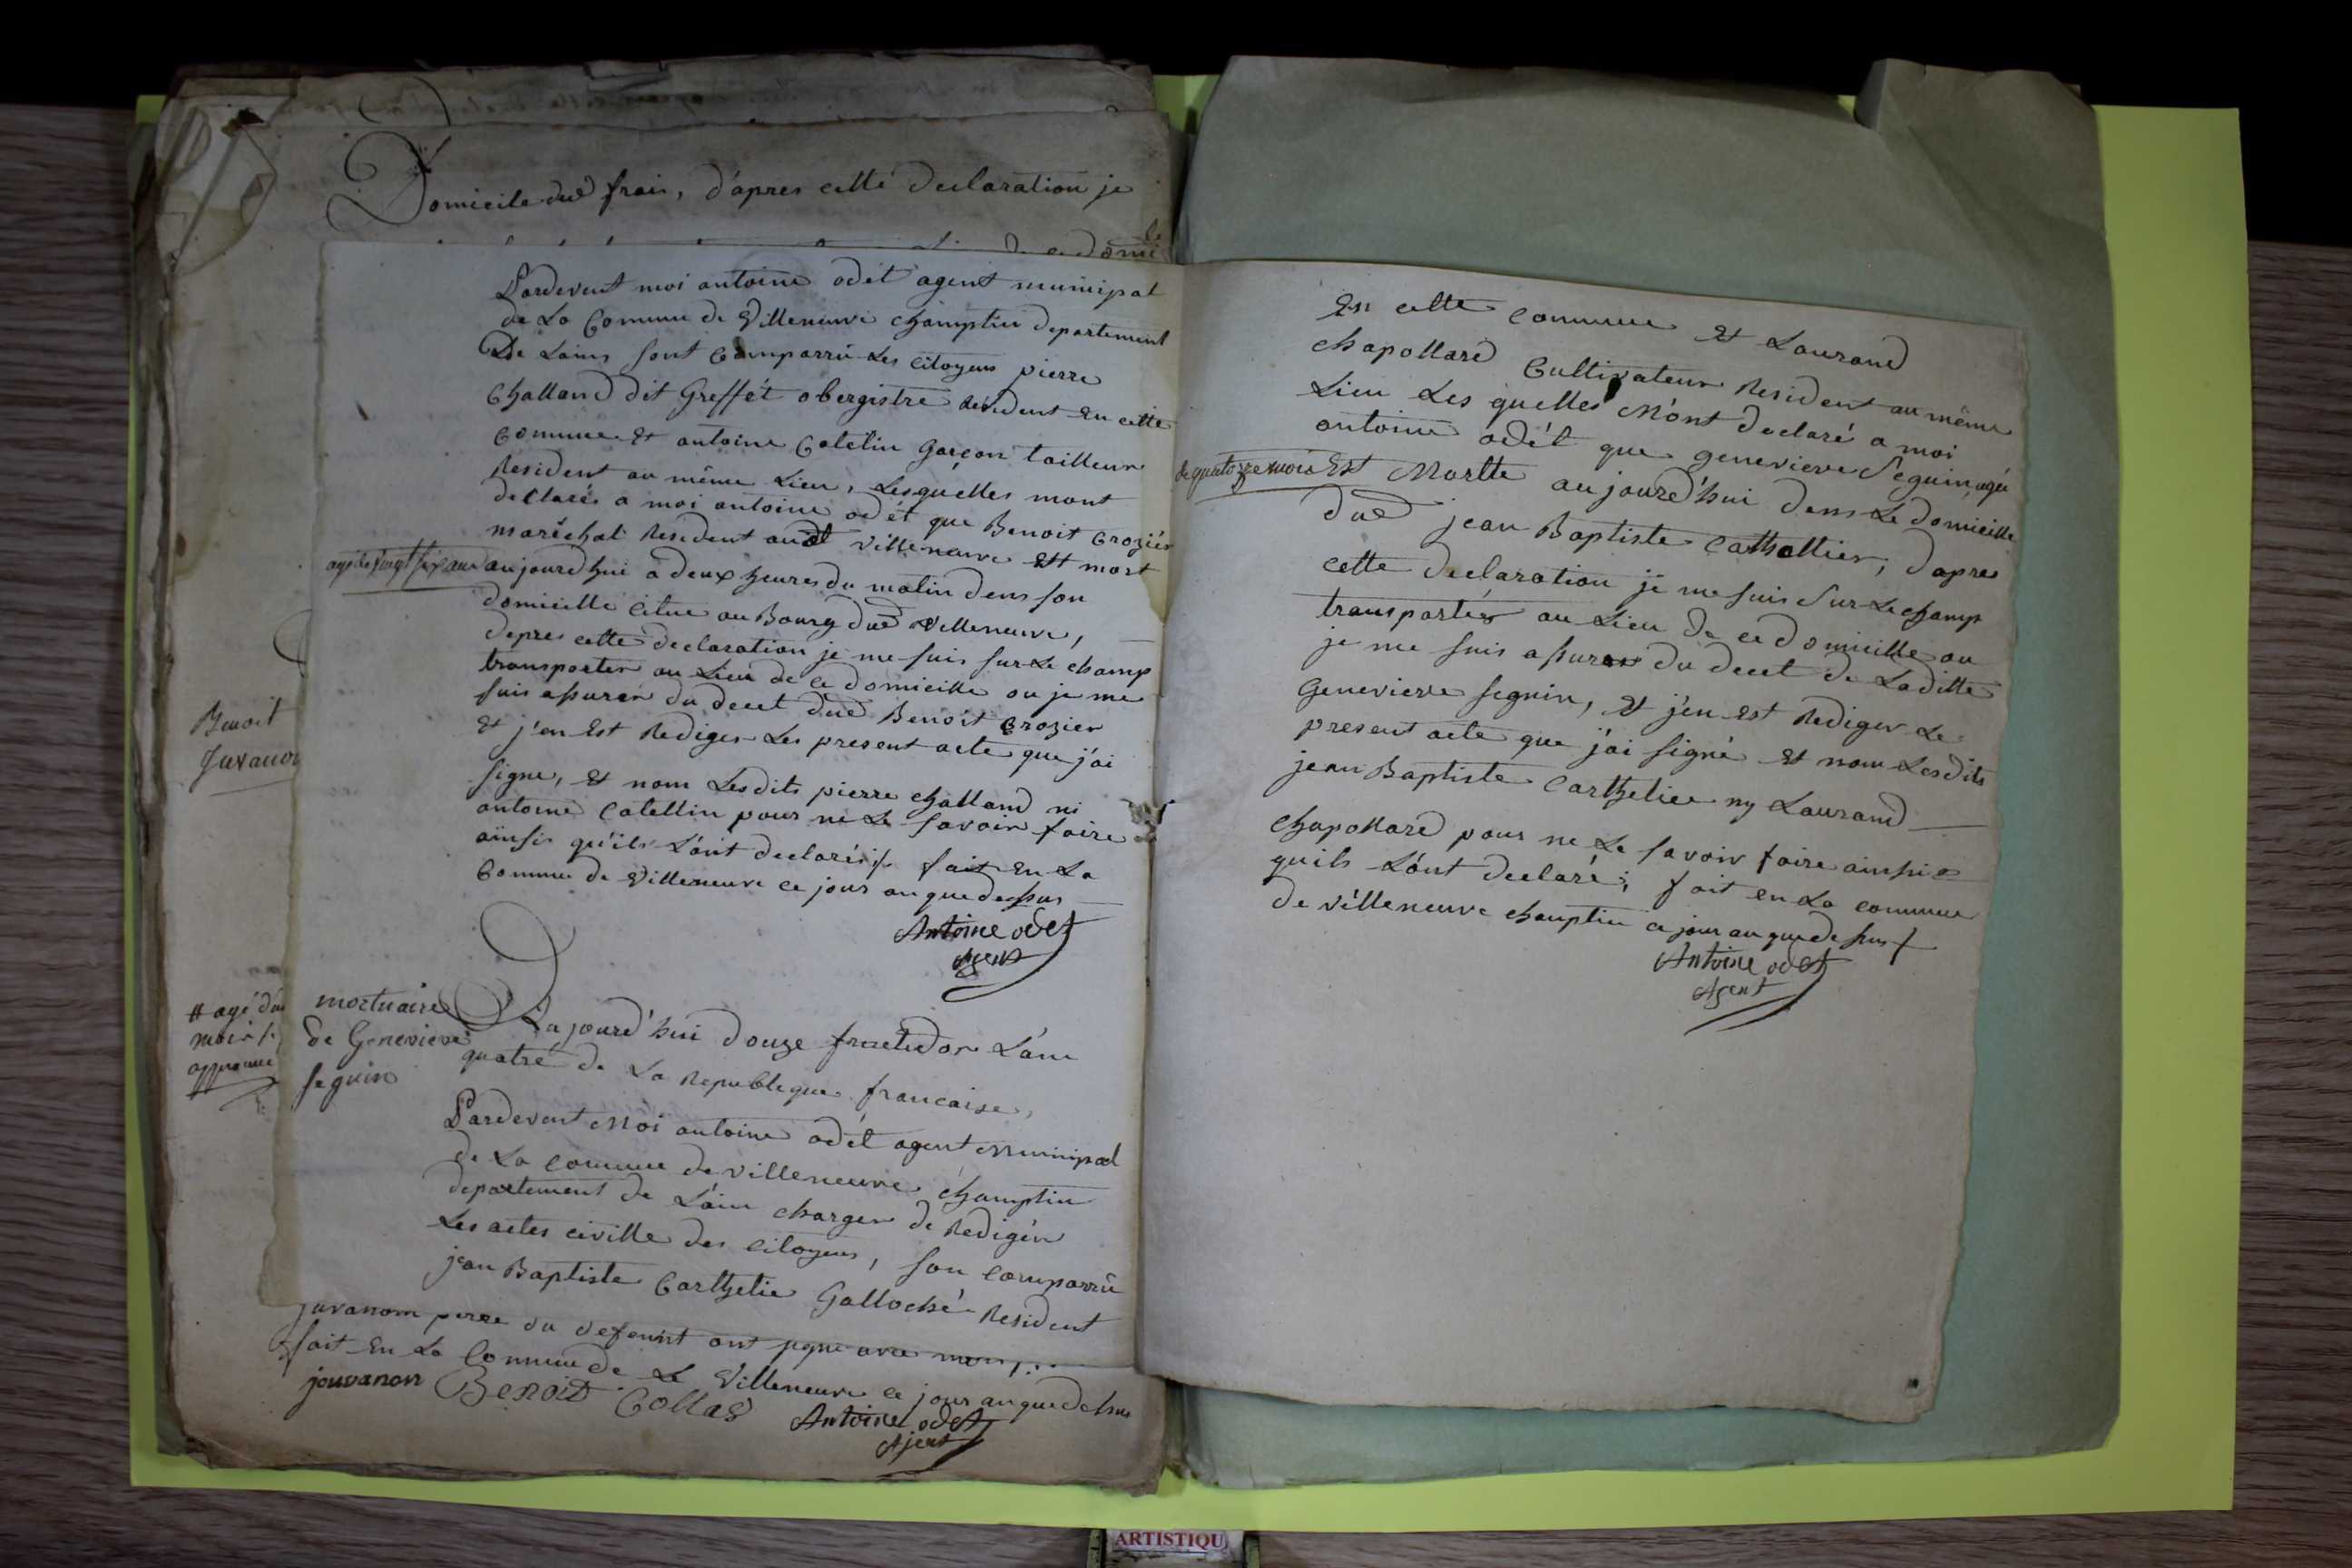 Domicile dud frais, d'apres cette declaration je
Pardevent moi antoine odet agent municipal
de La Comune de Villeneuve champtin departement
De Lains sont Comparru Les Citoyens pierre
Challand dit Greffét obergistre Résident En cette
Commune Et antoine Catelin Garçon tailleur
Resident au même Lieu, Lesquelles mont
declarés a moi antoine odét que Benoit Crozièr
maréchal Resident aud villeneuve Est mort
agé de vingt six ans aujourdhui a deux heures du matin dens son
domicille Citué au Bourg dud Villeneuve,
depres cette declaration je me suis sur Le champ
transporter au Lieu de ce domicille ou je me
suis assurer du decet dud Benoit Crozier
Et j'en Est Rediger Les present acte que j'ai
signe, Et nom Lesdits pierre challand ni
antoine Catellin pour ne Le savoir faire
ainsis qu'ils L'ont declarés ;/. fait En La
Commune de Villeneuve ce jour an que dessus
Antoine odet
Agent
Benoit
Juvanon
# agé d'un
mois /.
approuvé
mortuaire
de Genevieve
seguin
Aujourd'hui douze fructidor L'ans
quatre de La Republeque francaise,
Pardevent Moi antoine odét agent Municipal
de La Commune de villeneuve champtin
departement de L'ain charger de Redigér
Les actes civille des Citoyens, son Comparru
jean Baptiste Carthelie Galloché Resident
Juvanom perre du defeunt ont signe avec moy ;.
fait En La Commune de Le Villeneuve ce jour an que dessus
jouvanon Benoit Collas Antoine odet
Ajent
En cette Commune Et Laurand
chapollard Cultivateur Resident au même
Lieu Les quelles M'ont declaré a moi
antoine odét que genevieve Seguin, agé
de quatorze mois Est Mortte aujourd'hui dens Le domicille
dud jean Baptiste Cathallier, d'apres
cette declaration je me suis Sur Le champ
transportér au Lieu de ce domicille ou
je me suis assurer du decet de Laditte
Genevieve seguin, Et j'en Est Rediger Le
present acte que j'ai signé Et nom Lesdits
jean Baptiste Carthelier ny Laurand
chapollard pour ne Le savoir faire ainsi
quils L'ont declaré ; fait en La commune
de vélleneuve champtin ce jour an que dessus /.
Antoine odet
Agent
ARTISTIQU